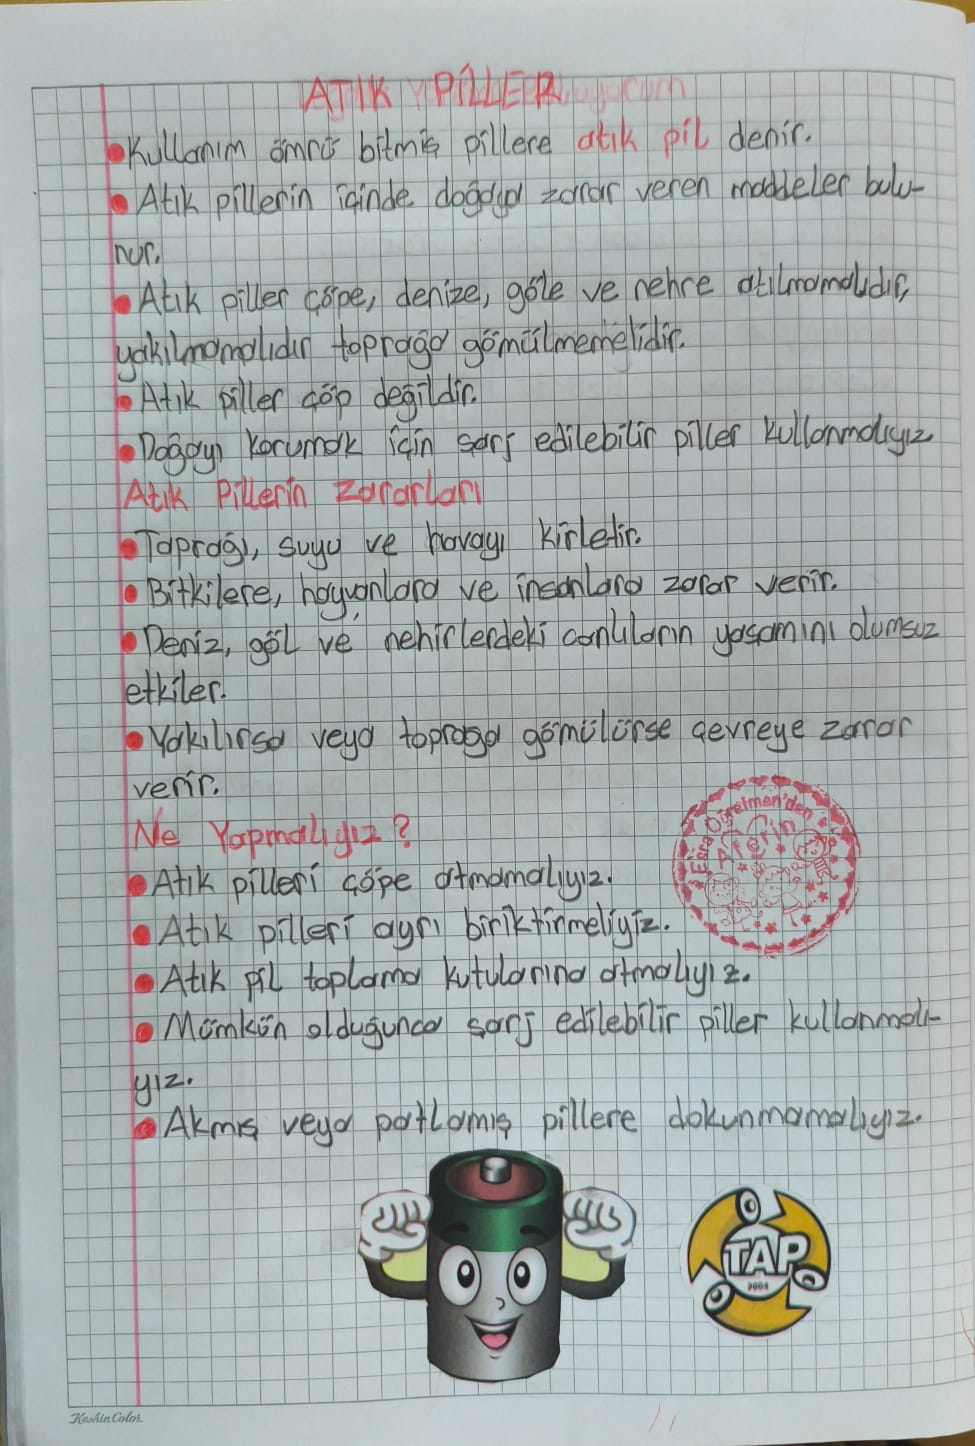 ATIK PİLLER
•Kullanım ömrü bitmiş pillere atık pil denir.
• Atık pillerin içinde doğaya zarar veren maddeler bulu-
nur.
• Atık piller çöpe, denize, göle ve nehre atılmamalıdır,
yakılmamalıdır toprağa gömülmemelidir.
• Atık piller çöp değildir.
•Doğayı korumak için şarj edilebilir piller kullanmalıyız
Atık Pillerin Zararları
•Toprağı, suyu ve havayı kirletir.
• Bitkilere, hayvanlara ve insanlara zarar verir.
• Deniz, göl ve nehirlerdeki canlıların yaşamını olumsuz
etkiler.
•Yakılırsa veya toprağa gömülürse çevreye zarar
verir.
Ne Yapmalıyız?
•Atık pilleri çöpe atmamalıyız.
• Atık pilleri ayrı biriktirmeliyiz.
•Atık pil toplama kutularına atmalıyız.
• Mümkün olduğunca şarj edilebilir piller kullanmalı-
yız.
•Akmış veya patlamış pillere dokunmamalıyız.
Esra Öğretmen'den
Aferin
TAP
2004
KeskinColor